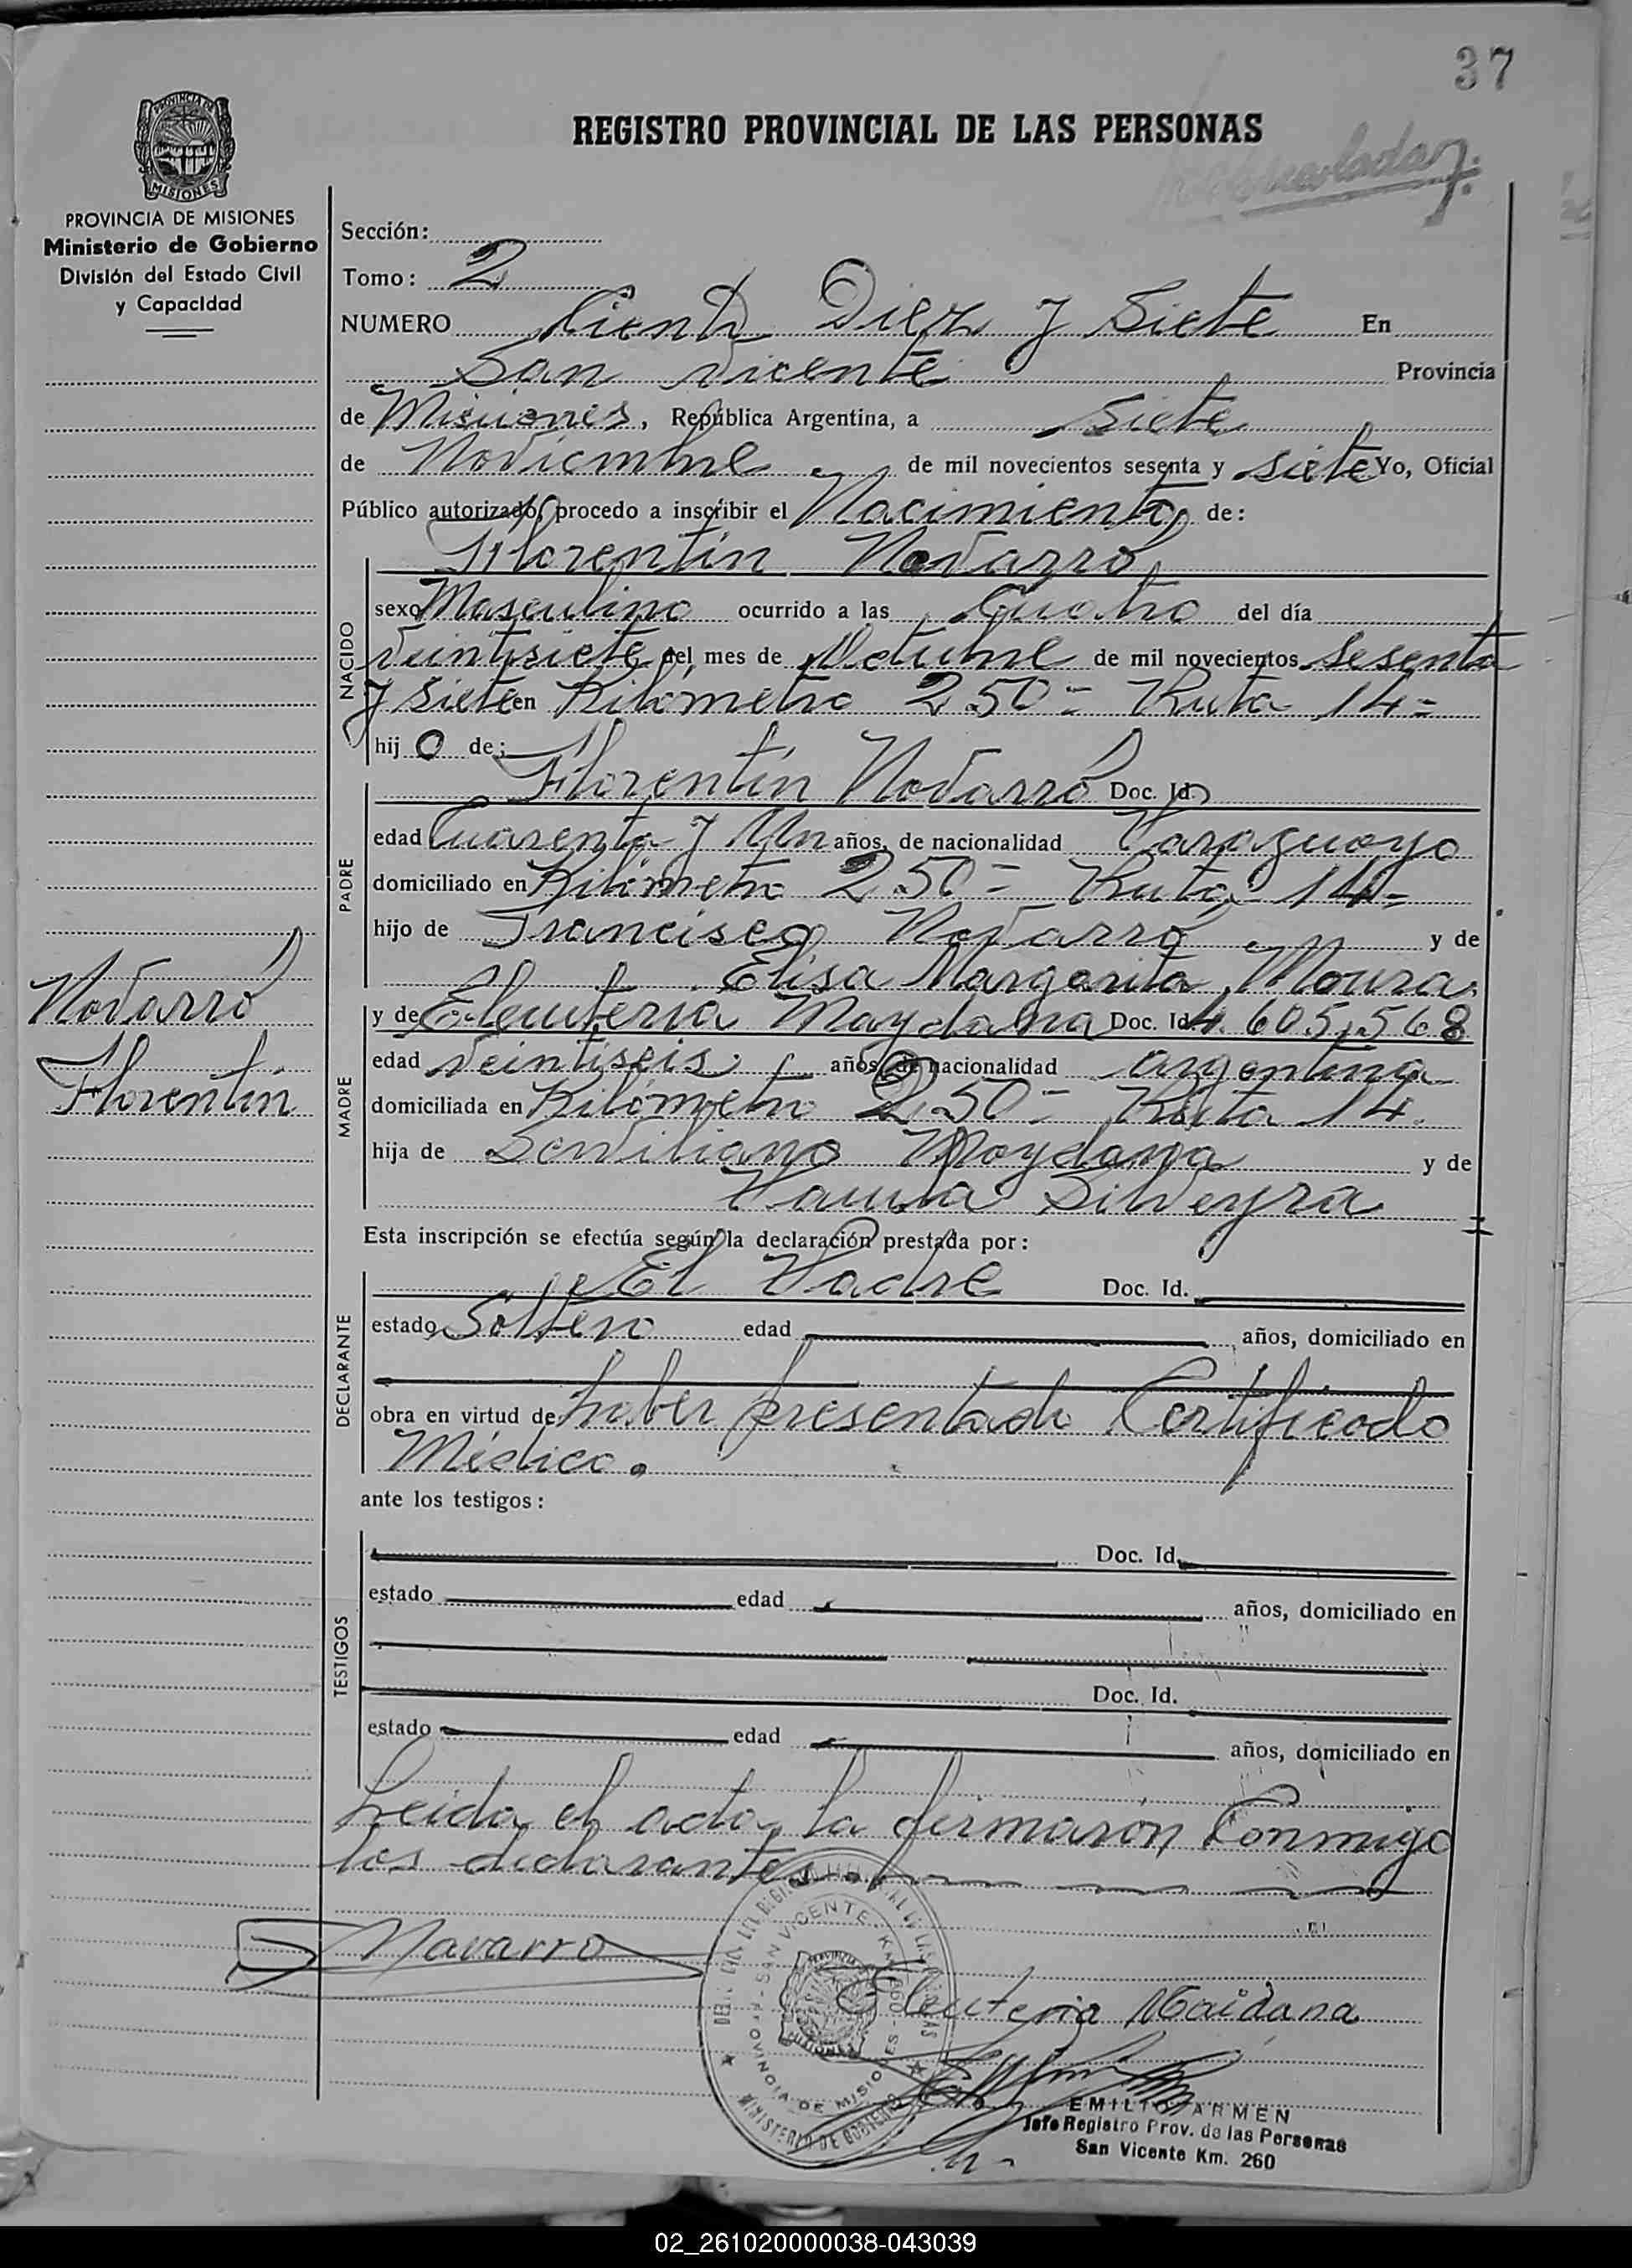 37
REGISTRO PROVINCIAL DE LAS PERSONAS
PROVINCIA DE MISIONES
Ministerio de Gobierno
División del Estado Civil
y Capacidad
Sección:
Tomo: 2
NUMERO Ciento Diez y Siete En
San Vicente Provincia
de Misiones, República Argentina, a Siete
de Noviembre de mil novecientos sesenta y siete Yo, Oficial
Público autorizado, procedo a inscribir el Nacimiento de:
Florentín Navarro
NACIDO
sexo Masculino ocurrido a las Cuatro del día
Veintisiete del mes de Octubre de mil novecientos Sesenta
y Siete en Kilómetro 250= Ruta 14=
hij o de:
Florentín Navarro Doc. Id.
PADRE
edad Cuarenta y Un años, de nacionalidad Paraguayo
domiciliado en Kilómetro 250= Ruta 14=
hijo de Francisco Navarro y de
Elisa Margarita Moura
y de Eleuteria Maydana Doc. Id. 4.605.568
MADRE
edad Veintiseis años de nacionalidad argentina
domiciliada en Kilómetro 250= Ruta 14.
hija de Serviliano Maydana y de
Paula Silveyra
Esta inscripción se efectúa según la declaración prestada por:
El Padre Doc. Id.
DECLARANTE
estado Soltero edad años, domiciliado en
obra en virtud de haber presentado Certificado
Médico.
ante los testigos:
TESTIGOS
Doc. Id.
estado edad años, domiciliado en
Doc. Id.
estado edad años, domiciliado en
Leida el acta, la firmarón Conmigo
los declarantes
Navarro
Florentín
Navarro
SAN VICENTE - KM. 260
PROVINCIA DE MISIONES
MINISTERIO DE GOBIERNO
Eleuteria Maidana
EMILIO ARMEN
Jefe Registro Prov. de las Personas
San Vicente Km. 260
02_261020000038-043039